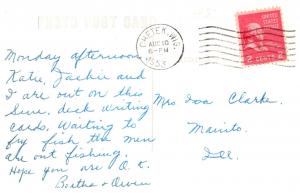 PHOTO POST CARD
CHETEK, WIS.
AUG 10
6-PM
1953
UNITED STATES
2 CENTS 2
Monday afternoon
Katie, Jackie and
I are out on this
Sun. deck writing
cards. Waiting to
fry fish the men
are out fishing.
Hope you are O.K.
Bertha + Orvin
Mrs Ina Clarke.
Manito.
Ill.